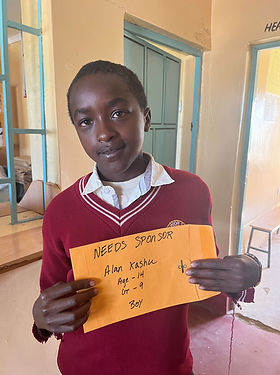 HE
NEEDS SPONSOR
Alan Kashu
Age - 14
Gr - 9
Boy